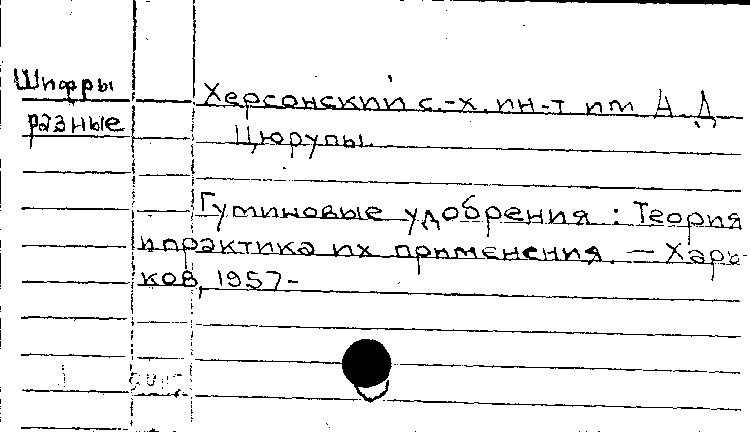 Шифры
разные
Херсонский с.-х. ин-т им А.Д
Цюрупы.
Гуминовые удобрения : Теория
и практика их применения. — Харь-
ков, 1957-